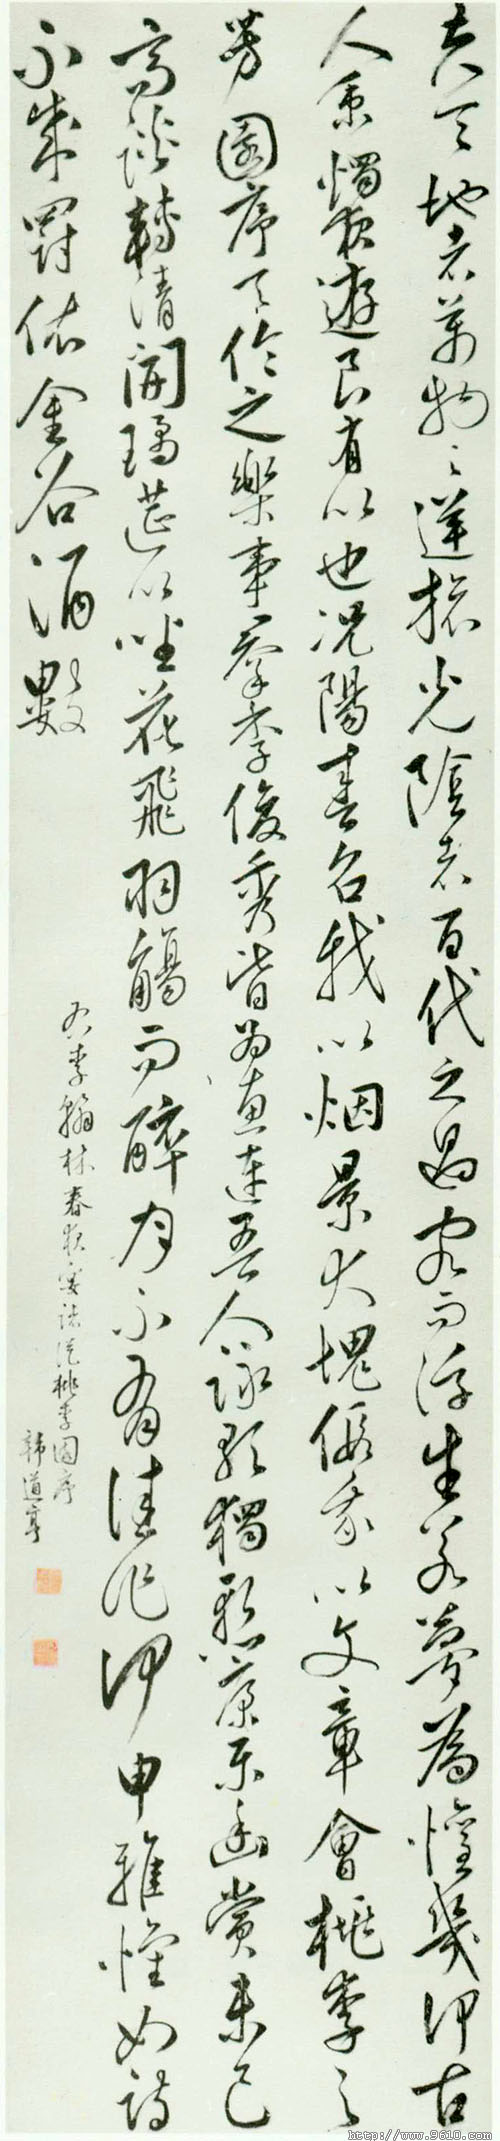 夫天地者萬物之逆旅光陰者百代之過客而浮生若夢為懽幾何古
人秉燭夜遊良有以也況陽春召我以烟景大塊假我以文章會桃李之
芳園序天倫之樂事羣季俊秀皆為惠連吾人詠歌獨慙康樂幽賞未已
高談轉清開瓊筵以坐花飛羽觴而醉月不有佳作何申雅懷如詩
不成罰依金谷酒數
右李翰林春夜宴諸從桃李園序
韓道亨
http://www.9610.com